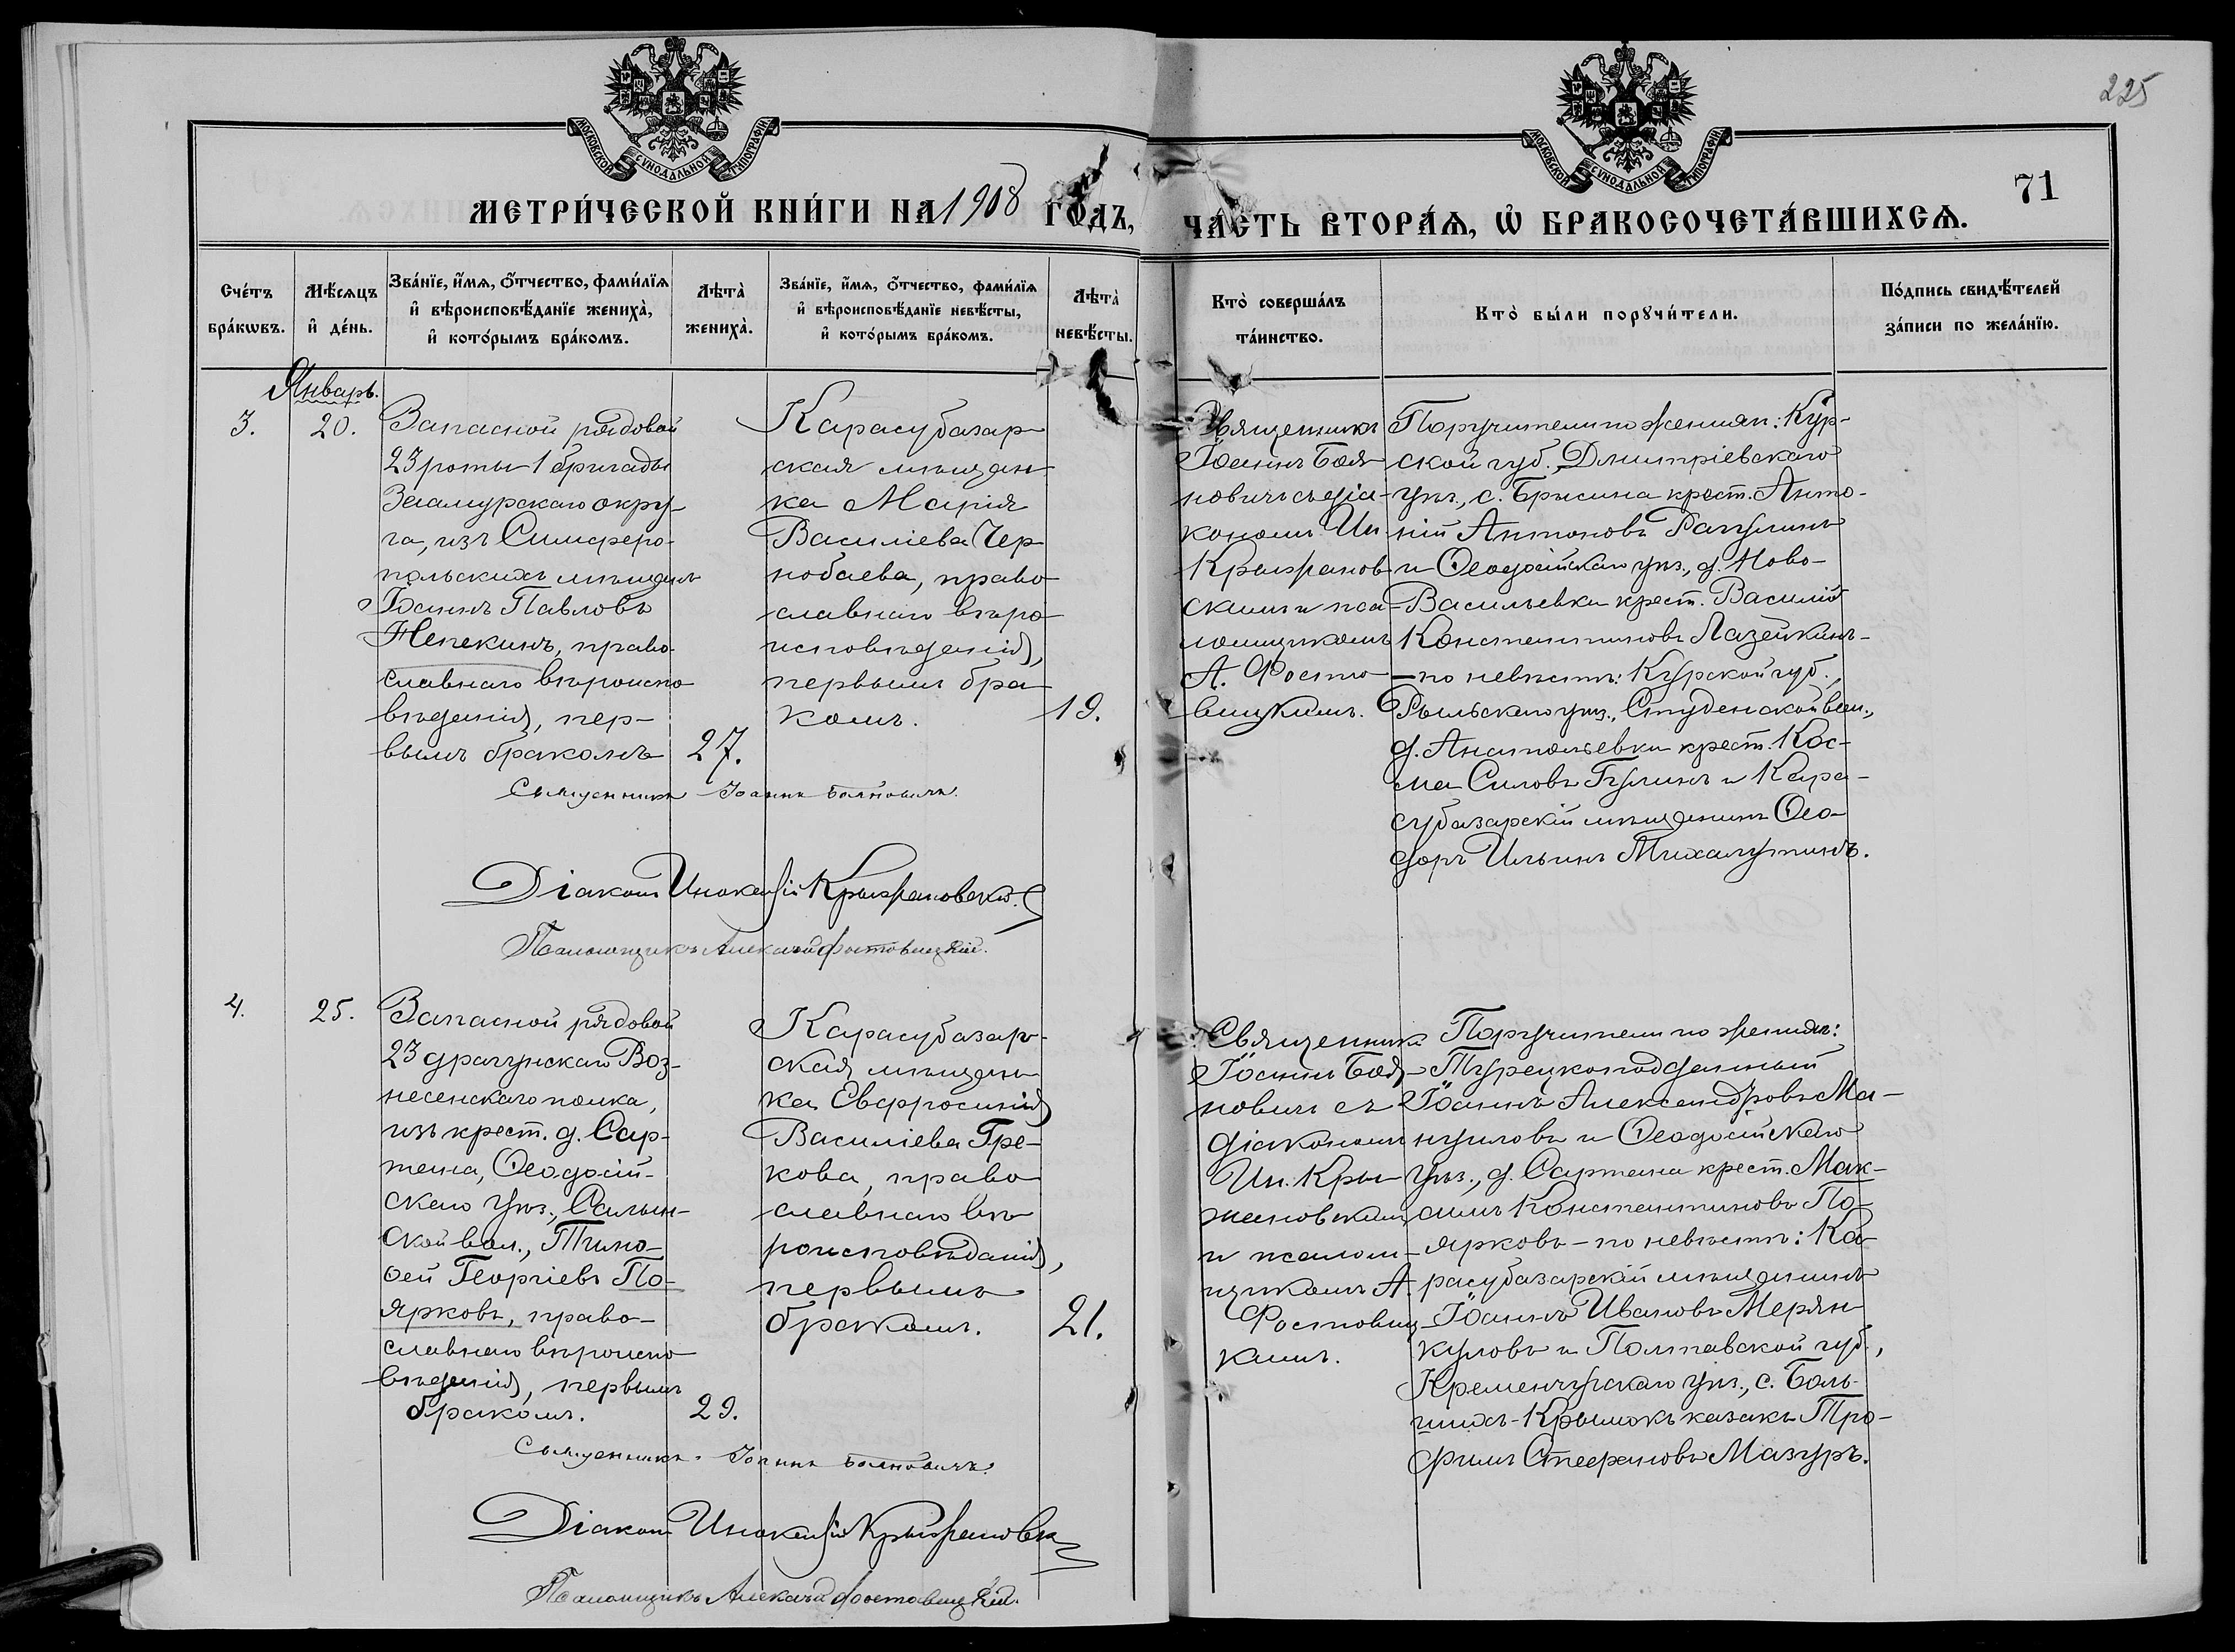 225
МОСКОВСКОЙ СУНОДАЛЬНОЙ ТИПОГРАФІИ
МОСКОВСКОЙ СУНОДАЛЬНОЙ ТИПОГРАФІИ
71
МЕТРИ́ЧЕСКОЙ КНИ́ГИ НА 1908 ГОДЪ,
ЧА́СТЬ ВТОРА́Ѧ, Ѡ БРАКОСОЧЕТА́ВШИХСѦ.
Сче́тъ
бра́кѡвъ.
Мѣ́сѧцъ
и҆ де́нь.
Зва́нїе, и҆́мѧ, ѻ҆́тчество, фами́лїѧ
и҆ вѣроисповѣ́данїе жениха̀,
и҆ кото́рымъ бра́комъ.
Лѣта̀
жениха̀.
Зва́нїе, и҆́мѧ, ѻ҆́тчество, фами́лїѧ
и҆ вѣроисповѣ́данїе невѣ́сты,
и҆ кото́рымъ бра́комъ.
Лѣта̀
невѣ́сты.
Кто̀ соверша́лъ
та́инство.
Кто̀ бы́ли порꙋчи́тели.
По́дпись свидѣ́телей
за́писи по жела́нїю.
Январь.
3.
20.
Запасной рядовой
23 роты 1 бригады
Заамурскаго окру-
га, изъ Симферо-
польскихъ мѣщанъ
Іоаннъ Павловъ
Непекинъ, право-
славнаго вѣроиспо-
вѣданія, пер-
вымъ бракомъ
27.
Карасубазар-
ская мѣщан-
ка Марія
Василіева Чер-
нобаева, право-
славнаго вѣро-
исповѣданія,
первымъ бра-
комъ.
19.
Священникъ
Іоаннъ Боя-
новичъ съ діа-
кономъ Ин.
Крыжанов-
скимъ и пса-
ломщикомъ
А. Фосто-
вицкимъ.
Поручители по женихѣ: Кур-
ской губ. Дмитріевскаго
уѣз., с. Брисина крест. Анто-
ній Антоновъ Рагулинъ
и Ѳеодосійскаго уѣз., д. Ново-
Васильевки крест. Василій
Константиновъ Лазейкинъ-
-по невѣстѣ: Курской губ.,
Рыльскаго уѣз., Студенской вол.,
д. Анатольевки крест. Кос-
ма Силовъ Гулинъ и Кара-
субазарскій мѣщанинъ Ѳео-
доръ Ильинъ Михалутинъ.
Священникъ Іоаннъ Бояновичъ.
Діаконъ Инокентій Крыжановскій.
Псаломщикъ Алексѣй Фостовицкій.
4.
25.
Запасной рядовой
23 драгунскаго Воз-
несенскаго полка,
изъ крест. д. Сар-
тана, Ѳеодосій-
скаго уѣз., Салын-
ской вол., Тимо-
ѳей Георгіевъ По-
ярковъ, право-
славнаго вѣроиспо-
вѣданія, первымъ
бракомъ.
29.
Карасубазар-
ская мѣщан-
ка Евфросинія
Василіева Гре-
кова, право-
славнаго вѣ-
роисповѣданія,
первымъ
бракомъ.
21.
Священникъ
Іоаннъ Боя-
новичъ съ
діакономъ
Ин. Кры-
жановскимъ
и псалом-
щикомъ А.
Фостовиц-
кимъ.
Поручители по женихѣ:
Турецкоподданный
Іоаннъ Александровъ Ма-
нуиловъ и Ѳеодосійскаго
уѣз., д. Сартана крест. Мак-
симъ Константиновъ По-
ярковъ - по невѣстѣ: Ка-
расубазарскій мѣщанинъ
Іоаннъ Ивановъ Мерян-
куловъ и Полтавской губ.,
Кременчугскаго уѣз., с. Боль-
шихъ-Крынокъ казакъ Тро-
фимъ Стефановъ Мазуръ.
Священникъ Іоаннъ Бояновичъ.
Діаконъ Инокентій Крыжановскій
Псаломщикъ Алексѣй Фостовицкій.